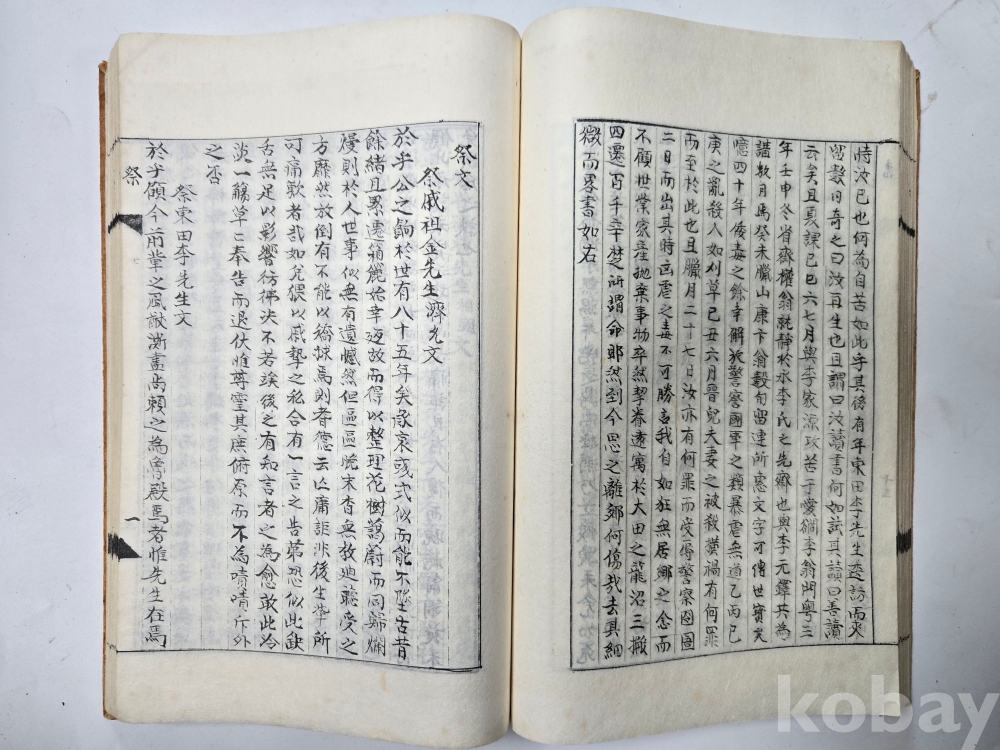 時汝已也何為自苦如此乎其後有年東田李先生委訪而來
留數日奇之曰汝再生也且謂曰汝讀書何如試其讀曰善讀
云矣且夏課己巳六七月與李家源攻苦于愛磵李翁門粤三
年壬申冬省齋權翁就靜於永李氏之先齋也與李元鐸共為
講數月焉癸未臘山康卞翁數旬留連所惠文字可傳世寶矣
憶四十年倭毒之餘幸解放警察國軍之戮暴虐無道乙丙已
庚之亂殺人如刈草己丑六月晉兒夫妻之被殺黨禍有何罪
而至於此也且臘月二十七日汝亦有何罪而受辱警察囹圄
三日而出其時凶虐之毒不可勝言我自如狂無居鄉之念而
不顧世業家產拋棄事物卒然挈眷遠寓於大田之龍沼三搬
四遷百千辛楚所謂命耶然到今思之離鄉何傷哉去其細
微而畧書如右
祭文
祭戚祖金先生濟先文
於乎公之餉於世有八十五年矣承哀或式似而能不墜古昔
餘緒且累遷霜麓始幸返故而得以整理花樹蔼蔚而同歸爛
熳則於人世事似無有遺憾然但區區恍宋杳無放迪聽受之
方靡然放倒有不能以矯捄焉則耆德云亡庸詎非後生輩所
可痛歎者哉如凭偎以戚摯之私合有一言之告第恐似此缺
舌無足以影響彷彿決不若竢後之有知言者之為愈敢此冷
淡一觴草草奉告而退伏惟尊靈其庶俯原而不為嘖嘖斥外
之否
祭東田李先生文
於乎顧今前輩之風猷澌盡尚賴之為魯殿焉者惟先生在焉
祭
一
kobay